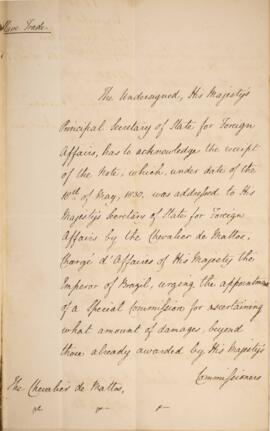 Slave Trade.
The Undersigned, His Majesty's
Principal Secretary of State for Foreign
Affairs, has to acknowledge the receipt
of the Note, which, under date of the
of May, 1830, was addressed to His
Majesty's Secretary of State for Foreign
Affairs by the Chevalier de Mattos,
Chargé d'Affaires of His Majesty the
Emperor of Brazil, urging the appointment
of a Special Commission for ascertaining
what amount of damages, beyond
those already awarded by His Majesty's
Commissioners
The Chevalier de Mattos,